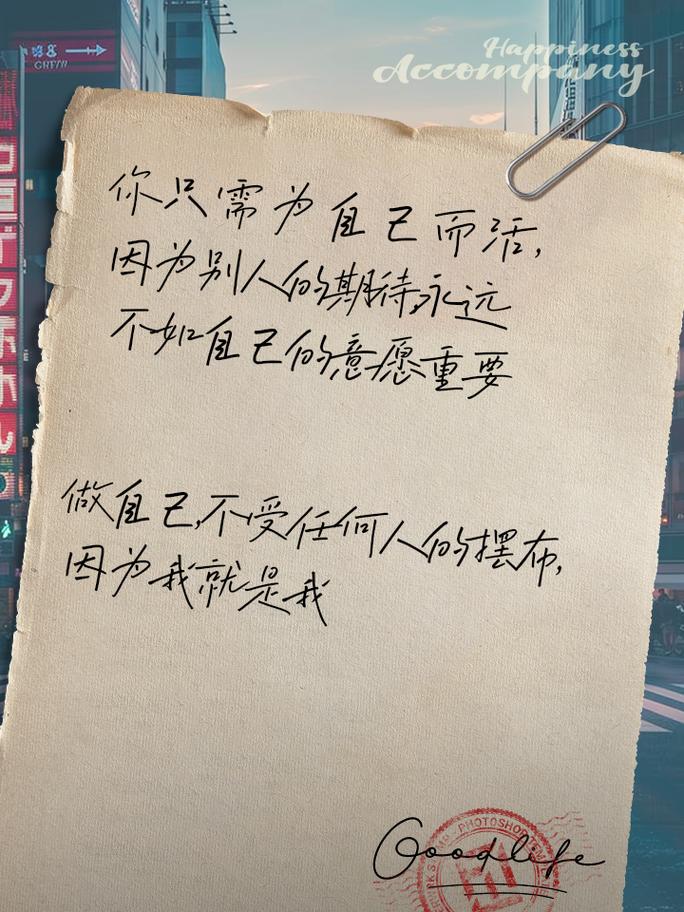 Happiness
Accompany
你只需为自己而活,
因为别人的期待,永远
不如自己的意愿重要
做自己,不受任何人的摆布,
因为我就是我
Goodlife
PHOTOSHOP